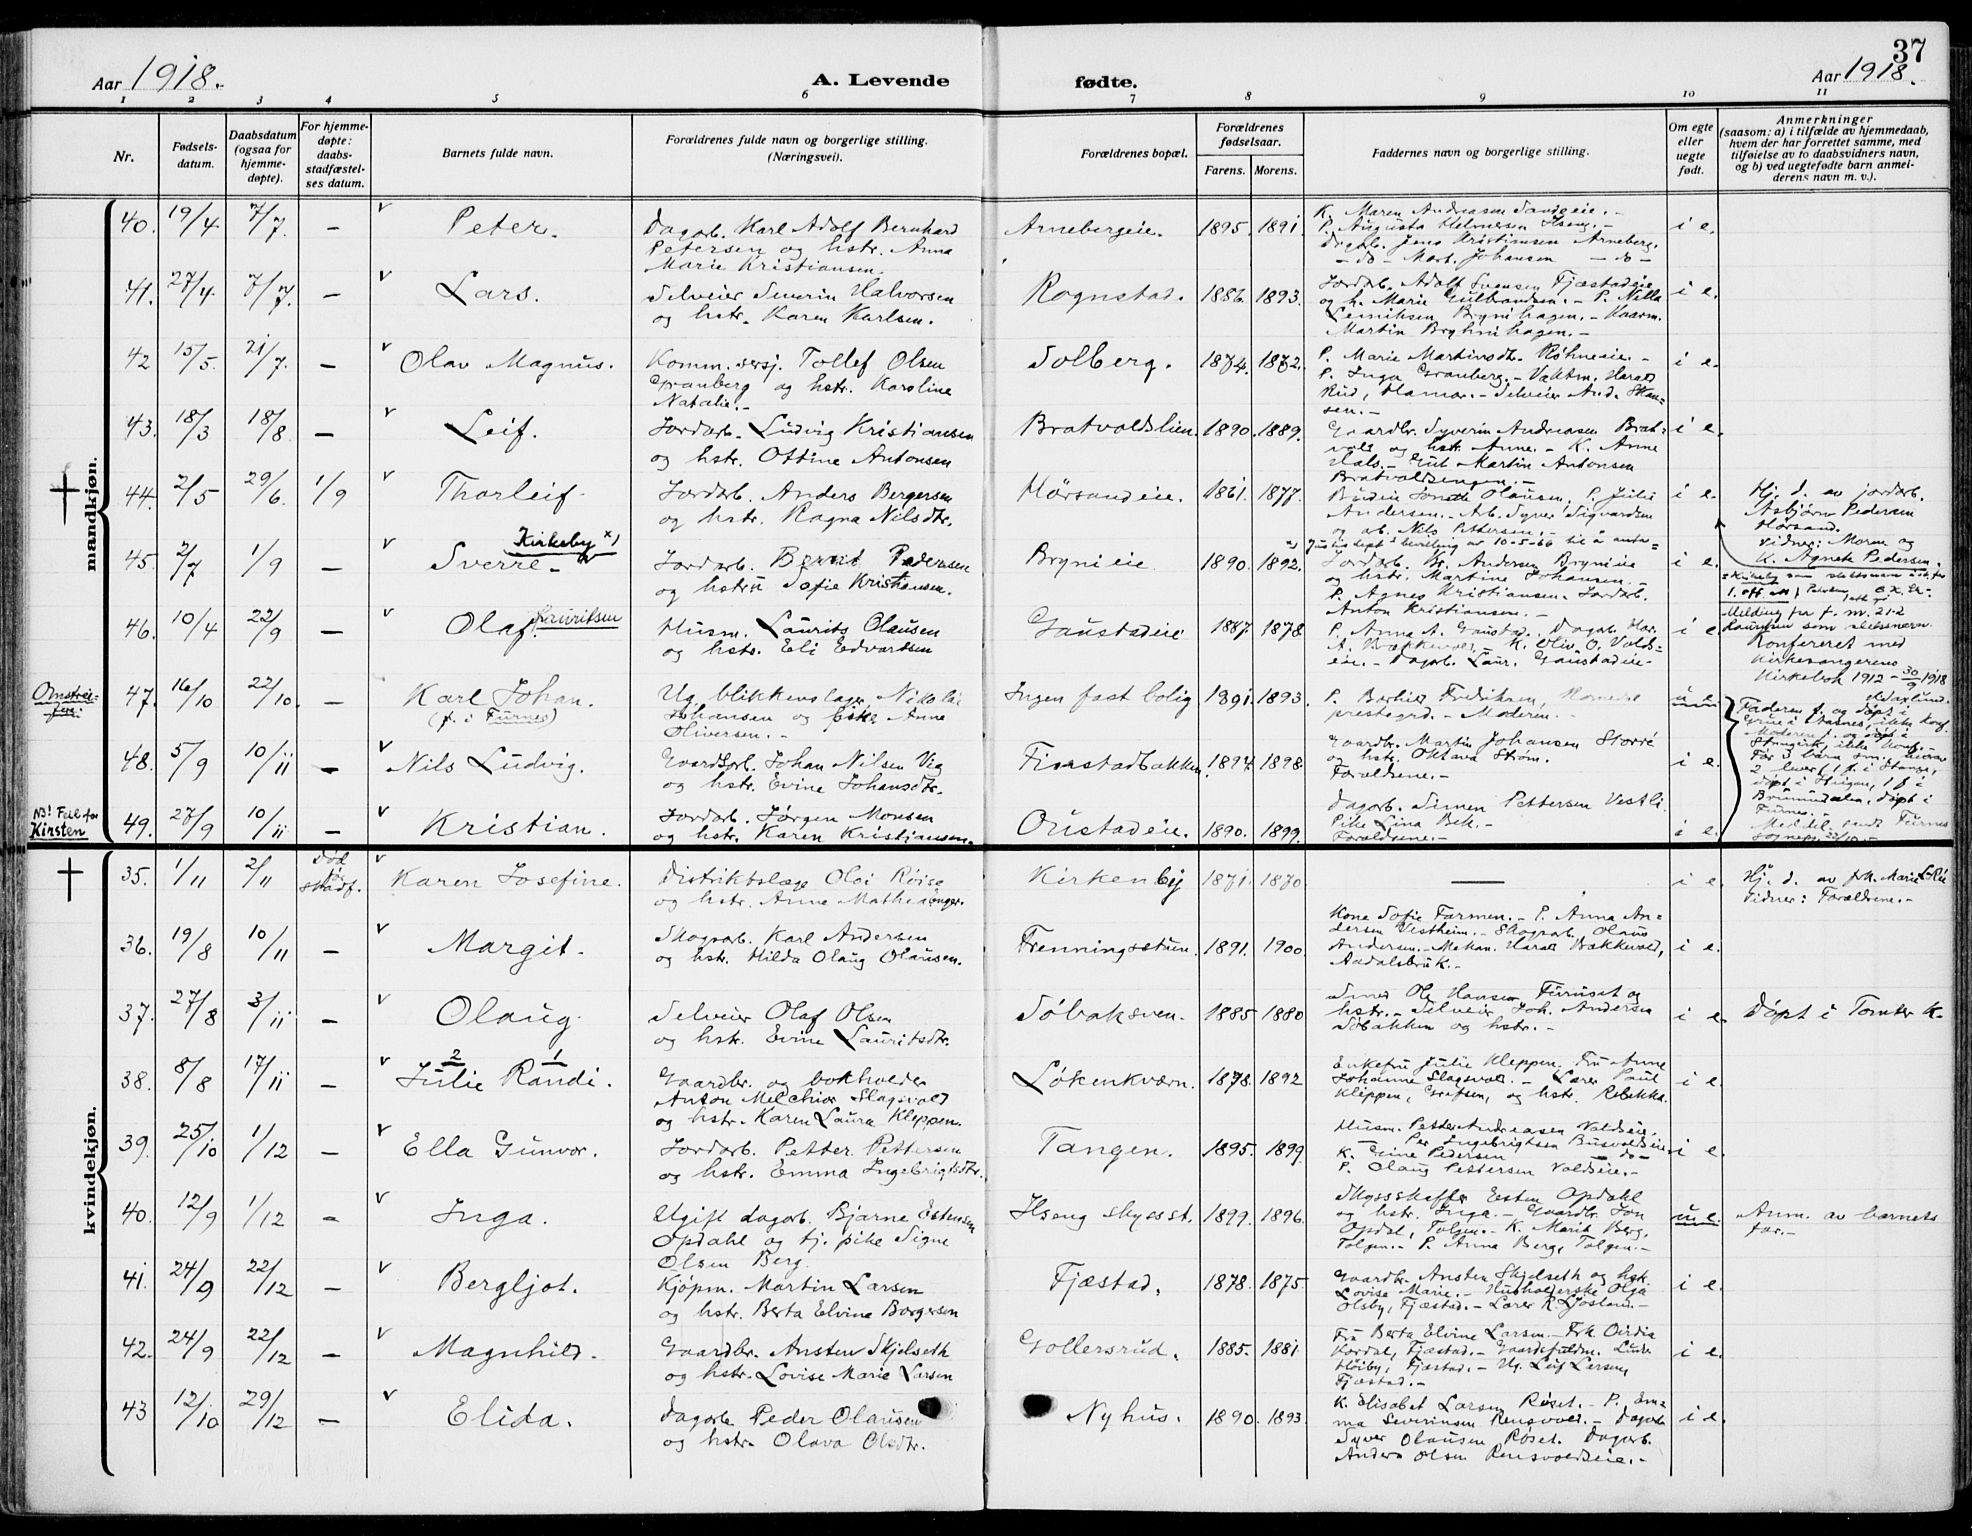 37
Aar 1918.
A. Levende
fødte.
Aar 1918.
1 2 3 4 5 6 7 8 9 10 11
Nr.
Fødsels-
datum.
Daabsdatum
(ogsaa for
hjemme-
døpte).
For hjemme-
døpte:
daabs-
stadfæstel-
ses datum.
Barnets fulde navn.
Forældrenes fulde navn og borgerlige stilling.
(Næringsvei).
Forældrenes bopæl.
Forældrenes
fødselsaar.
Farens. Morens.
Faddernes navn og borgerlige stilling.
Om egte
eller
uegte
født.
Anmerkninger
(saasom: a) i tilfælde av hjemmedaab,
hvem der har forrettet samme, med
tilføielse av to daabsvidners navn,
og b) ved uegtefødte barn anmel-
derens navn m. v.).
mandkjøn.
40. 19/4 7/7. – Peter.
Dagarb. Karl Adolf Bernhard
Petersen og hstr. Anna
Marie Kristiansen.
Arnebergeie. 1895. 1891
K. Maren Andreasen Sandeeie. –
P. Augusta Helmersen Hseng. –
Dagarb. Jens Kristiansen Arneberg.
– do – Mart. Johansen – do –
i e.
41. 27/4 7/7. – Lars.
Selveier Severin Halvorsen
og hstr. Karen Karlsen.
Rognstad. 1886. 1893.
Jordarb. Adolf Svensen Fjæstadeie
og h. Marie Gulbrandsen. – P. Nilla
Brynihagen. –
Martin Bryhnihagen. –
i e.
42 15/5. 21/7. – Olav Magnus.
Komm. Tollef Olsen
Granberg og hstr. Karoline
Natalie. –
Solberg. 1874. 1872.
P. Marie Martinsdtr. Røhneeie. –
P. Inga Granberg. – Vaktm. Harald
Rud, Hamar. – Selveier And. Skan=
sen. –
i e.
43. 18/3 18/8. – Leif.
Jordarb. Ludvig Kristiansen
og hstr. Ottine Antonsen
Bratvoldslien. 1890. 1889.
Gaardbr. Syverin Andreasen Brat=
vold og hstr. Anne. – K. Anne
Hals. – Gut Martin Antonsen
Bratvoldsengen. –
i e.
44. 2/5 29/6. 1/9 Thorleif.
Jordarb. Anders Bergersen
og hstr. Ragna Nilsdtr.
Hørsandeie. 1861. 1877.
Olausen. P. Julie
Andersen. – Arb. Syver Sigvardsen
og arb. Nils Pettersen. –
i e.
Hj. d. av jordarb.
Asbjørn Pedersen
Hørsand.
Vidner: Moren og
K. Agnete Pedersen.
45. 2/7 1/9 – Sverre – Kirkeby x)
Jordarb. Bernt Pedersen
og hstru Sofie Kristiansen.
Brynieie. 1890. 1892.
x) Justisdept's bevilling av 10-5-66 til å anta=
Jordarb. Br. Andersen Brynieie
og hstr. Martine Johansen. –
P. Agnes Kristiansen. Jordarb.
Anton Kristiansen. –
i e.
46. 10/4 22/9 – Olaf. Lauritsen
Husm. Laurits Olausen
og hstr. Eli Edvartsen
Gaustadeie 1887. 1878.
P. Anna A. Gaustad. Dagarb. Har.
A. Bækkevold. – K. Oliv. O. Volds=
eie. – Dagarb. Laur. Gaustadeie –
i e.
Melding fra f. m. 21-2
Lauritsen som slektsnavn.
Konfereret med
Kirkesangerens
Kirkebok 1912 – 30/9 1918
47. 16/10 22/10. – Karl Johan.
(f. i Furnes)
Ug. blikkenslager Nikolai
Johansen og pike Anne
Oliversen. –
Ingen fast bolig 1891. 1893.
prestegrd. – Moderen. –
u e.
Faderen f. og døpt i
Grue i Aasnes, ikke konf.
Moderen f. og døpt i
Stangirk, ikke konf. –
Før 3 barn sm., hvorav
2 lever, 1 f. i Stange,
Brumundalen, døpt i
Furnes. –
48. 5/9 10/11 – Nils Ludvig.
Gaardarb. Johan Nilsen Vig
og hstr. Evine Johansdtr.
Finstadbakken. 1894. 1898.
Gaardbr. Martin Johansen Storre
og hstr. Oktava Strøm.
Foreldrene. –
i e.
NB! Feil for
Kirsten
49. 27/9 10/11 – Kristian.
Jordarb. Jørgen Monsen
og hstr. Karen Kristiansen.
Oustadeie. 1890. 1899.
Dagarb. Simen Pettersen Vestli.
Pike Lina Bek. –
Foreldrene. –
i e.
kvindekjøn.
35. 1/11 2/11 Død
før
stadf. Karen Josefine.
Distriktslæge Oloi Røise
og hstr. Anne Mathea
Kirkenby 1871. 1870.
—
i e.
Hj. d. av frk. Marie
Vidner: Forældrene. –
36. 19/8 10/11 – Margit.
Skogsarb. Karl Andersen
og hstr. Hilda Olaug Olausen.
Frenningsstuen. 1891. 1900.
Kone Sofie Farmen. – P. Anna An=
dersen Vestheim. – Skogsarb. Olaus
Andersen. – Mekan. Harald Bækkevold,
Aadalsbruk. –
i e.
37. 27/8 3/11 – Olaug
Selveier Olaf Olsen
og hstr. Evine Lauritsdtr.
Sóbaksven. 1885 1880
Smed Ole Hansen Furuset og
hstr. – Selveier Joh. Andersen
Sóbakken og hstr. –
i e.
Døpt i Tomter K.
38. 8/8 17/11 – Julie Randi. 2 1
Gaardbr. og bokholder
Anton Melchior Slagsvold
og hstr. Karen Laura Kleppen.
Løkenkværn. 1878. 1892
Enkefru Julie Kleppen. Fru Anne
Johanne Slagsvold. – Lærer Paul
Kleppen, Grefsen, og hstr. Rebekka.
i e.
39. 25/10 1/12 – Ella Gunvor.
Jordarb. Petter Pettersen
og hstr. Emma Ingebrigtsdtr.
Tangen. 1895. 1899
Husm. Petter Andreasen Voldseie.
– Per Ingebrigtsen Busvoldseie
K. Eine Pedersen – do –
P. Olaug Pettersen Voldseie. –
i e.
40. 12/9 1/12 – Inga.
Ugift dagarb. Bjarne Estensen
Opdahl og tj. pike Signe
Olsen Berg.
Hseng skysst. 1899. 1896.
Skysskaffer Esten Opdahl
og hstr. Inga. – Gaardbr. Jon
Opdal, Tolgen. – K. Marit Berg,
Tolgen. – P. Anna Berg, Tolgen. –
u e.
Anm. av barnets
far. –
41. 24/9 22/12 – Bergljot.
Kjøpm. Martin Larsen
og hstr. Berta Elvine Borgersen
Fjæstad. 1878. 1875.
Gaardbr. Ansten Skjelseth og hstr.
Lovise Marie. – Husholderske Olga
Olsby, Fjæstad. – Lærer R. Jøsten. –
i e.
42. 24/9 22/12 – Magnhild.
Gaardbr. Ansten Skjelseth
og hstr. Lovise Marie Larsen
Gollersrud. 1885. 1881
Fru Berta Elvine Larsen – Frk. Oirdia
Kordal, Fjæstad. – Gaardsfuldm. Ludv.
Høiby, Fjæstad. – Ug. Leif Larsen,
Fjæstad. –
i e.
43 12/10 29/12 – Elida.
Dagarb. Peder Olausen
og hstr. Olava Olsdtr.
Nyhus. 1890. 1893.
K. Elisabet Larsen Røset. – P. Em=
ma Severinsen Rensvold. – Dagarb.
Syver Olausen Røset. Dagarb.
Anders Olsen Rensvoldseie. –
i e.